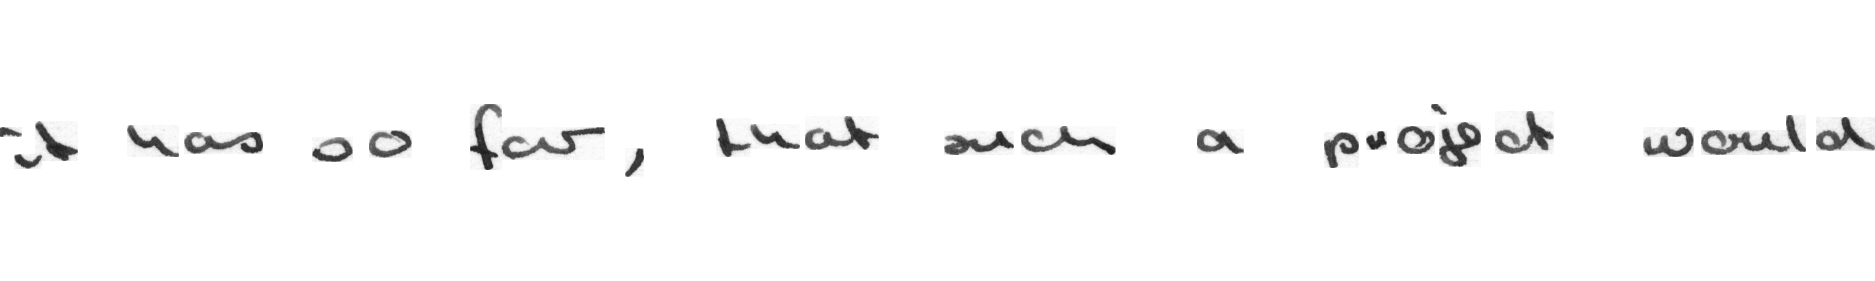 it has so far, that such a project would